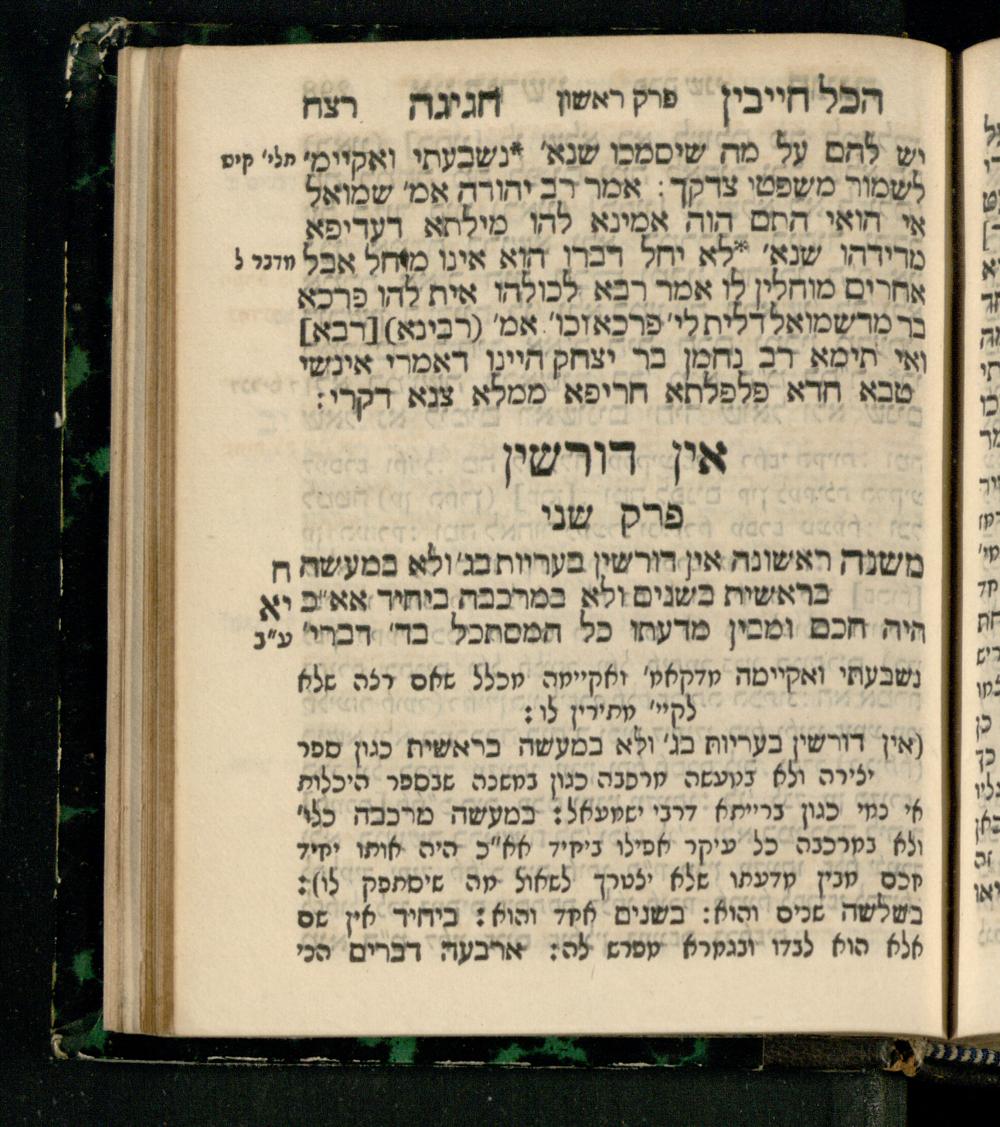 הכל חייבין פרק ראשון חגיגה רצח
יש להם על מה שיסמכו שנא' *נשבעתי ואקיימ' תלי' קיט
לשמור משפטי צדקך: אמר רב יהודה אמ' שמואל
אי הואי התם הוה אמינא להו מילתא דעדיפא
מדידהו שנא' *לא יחל דברו הוא אינו מוחל אבל מדבר ל
אחרים מוחלין לו אמר רבא לכולהו אית להו פרכא
בר מדשמואל דלית לי' פרכא זכו'. אמ' (רבינא) [רבא]
ואי תימא רב נחמן בר יצחק היינו דאמרי אינשי
טבא חדא פלפלתא חריפא ממלא צנא דקרי:
אין דורשין
פרק שני
משנה ראשונה אין דורשין בעריות בג' ולא במעשה ח
בראשית בשנים ולא במרכבה ביחיד אא"כ יא
היה חכם ומבין מדעתו כל המסתכל בד' דברי' ע"ב
נשבעתי ואקיימה מדקאמ' ואקיימה מכלל שאם רצה שלא
לקיי' מתירין לו:
(אין דורשין בעריות בג' ולא במעשה בראשית כגון ספר
יצירה ולא במעשה מרכבה כגון במשנה שבספר היכלות
אי נמי כגון ברייתא דרבי ישמעאל: במעשה מרכבה כלו'
ולא במרכבה כל עיקר אפילו ביחיד אא"כ היה אותו יחיד
חכם מבין מדעתו שלא יצטרך לשאול מה שיסתפק לו):
בשלשה שנים והוא: בשנים אחד והוא: ביחיד אין שם
אלא הוא לבדו ובגמרא מפרש לה: ארבעה דברים הכי